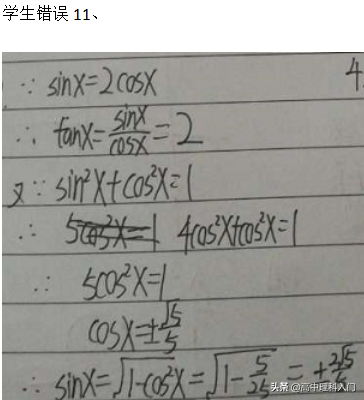 学生错误 11、
∵ sinx=2cosx
4
∴ tanx=sinx/cosx=2
又∵ sin²x+cos²x=1
∴ 5cos²x=1 4cos²x+cos²x=1
∴ 5cos²x=1
cosx=±√5/5
∴ sinx=√1-cos²x=√1-5/25=±2√5/5
头条 @高中理科入门